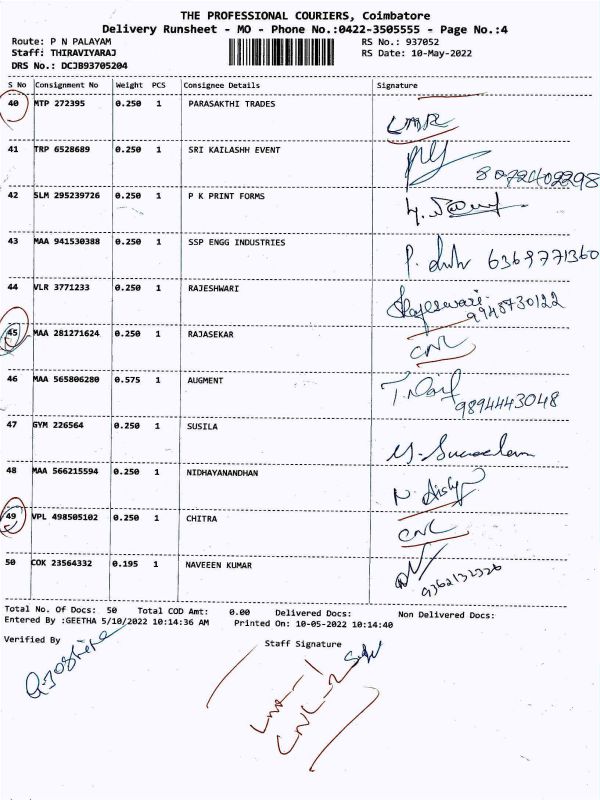 THE PROFESSIONAL COURIERS, Coimbatore
Delivery Runsheet - MO - Phone No.:0422-3505555 - Page No.:4
Route: P N PALAYAM RS No.: 937052
Staff: THIRAVIYARAJ RS Date: 10-May-2022
DRS No.: DCJB93705204
S No Consignment No Weight PCS Consignee Details Signature
40 MTP 272395 0.250 1 PARASAKTHI TRADES
41 TRP 6528689 0.250 1 SRI KAILASHH EVENT
8072402298
42 SLM 295239726 0.250 1 P K PRINT FORMS
43 MAA 941530388 0.250 1 SSP ENGG INDUSTRIES
P. 6369771360
44 VLR 3771233 0.250 1 RAJESHWARI Rajeswari.
45 MAA 281271624 0.250 1 RAJASEKAR CNL
46 MAA 565806280 0.575 1 AUGMENT
9894443048
47 GYM 226564 0.250 1 SUSILA
48 MAA 566215594 0.250 1 NIDHAYANANDHAN
49 VPL 498505102 0.250 1 CHITRA CNL
50 COK 23564332 0.195 1 NAVEEEN KUMAR
Total No. Of Docs: 50 Total COD Amt: 0.00 Delivered Docs: Non Delivered Docs:
Entered By :GEETHA 5/10/2022 10:14:36 AM Printed On: 10-05-2022 10:14:40
Verified By Staff Signature
CNL - 2